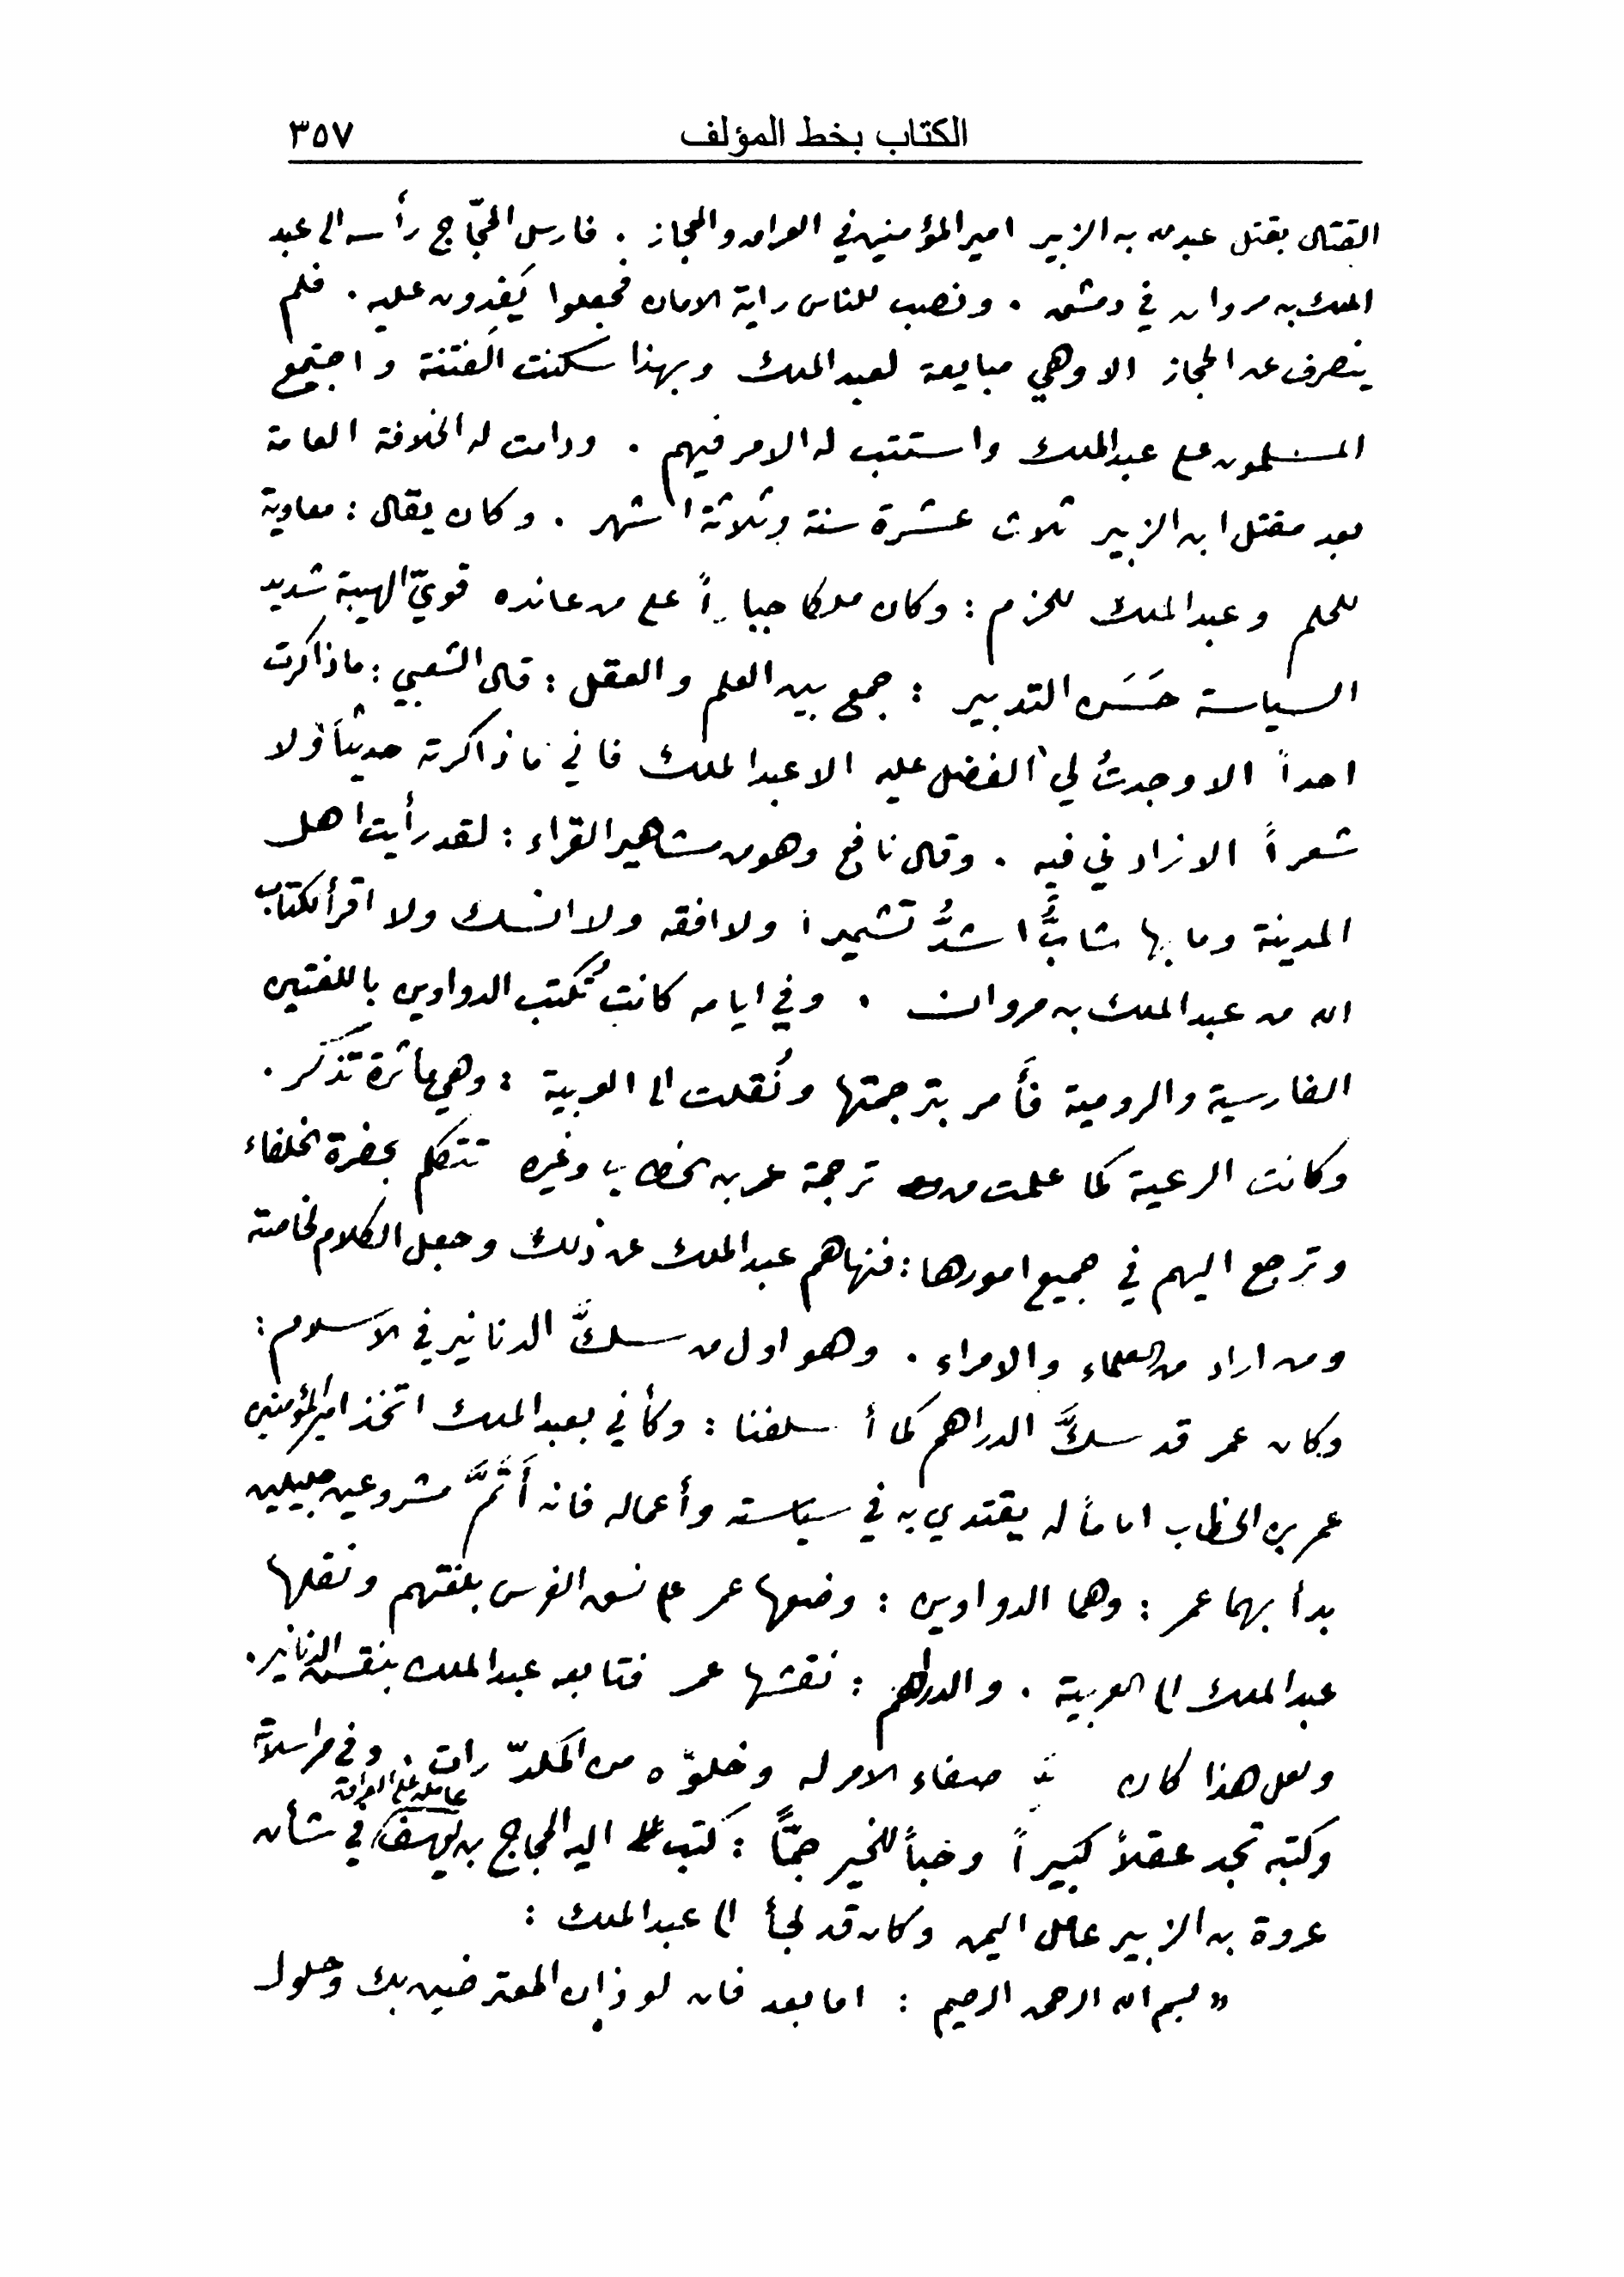 الكتاب بخط المؤلف ٣٥٧
القتال بقتل عبدالله بن الزبير امير المؤمنين في العراق والحجاز . فارسل الحجّاج رأسه الى عبد
الملك بن مروان في دمشق . ونصب للناس راية الامان فجعلوا يَفِدون عليه . فلم
ينصرف عن الحجاز الا وهي مبايعة لعبد الملك وبهذا سكنت الفتنة واجتمع
المسلمون على عبدالملك واستتب له الامر فيهم . ودامت له الخلافة العامة
بعد مقتل ابن الزبير ثلاث عشرة سنة وثلاثة اشهر . وكان يقال : معاوية
للحلم وعبد الملك للحزم : وكان ملكا جباراً على من عانده قويّ الهيبة شديد
السياسة حَسَن التدبير : جمع بين العلم والعقل : قال الشعبي : ما ذاكرت
احداً الا وجدتُ لي الفضل عليه الا عبدالملك فاني ما ذاكرته حديثاً ولا
شعراً الا زادني فيه . وقال نافع وهو من مشاهير القراء : لقد رأيت اهل
المدينة وما بها شابٌّ اشدُّ تشميرا ولا افقه ولا انسك ولا اقرأ لكتاب
الله من عبد الملك بن مروان . وفي ايامه كانت تُكتب الدواوين باللغتين
الفارسية والرومية فأَمر بترجمتها ونُقلت الى العربية : وهي مأثرة تذكر .
وكانت الرعية كما علمت من ترجمة عمر بن الخطاب وغيره تتكلم بحضرة الخلفاء
وترجع اليهم في جميع امورها : فنهاهم عبدالملك عن ذلك وجعل الكلام لخاصته
ومن اراد من العلماء والامراء . وهو اول من سكَّ الدنانير في الاسلام :
وكان عمر قد سكَّ الدراهم كما أسلفنا : وكأني بعبد الملك اتخذ امير المؤمنين
عمر بن الخطاب اماماً له يقتدي به في سياسته وأعماله فانه أَتَمَّ مشروعين جليلين
بدأ بهما عمر : وهما الدواوين : وضعها عمر على نسق الفرس بلغتهم ونقلها
عبد الملك الى العربية . والدراهم : نقشها عمر فتابعه عبدالملك بنقش الدنانير .
ولعل هذا كان صفاء الامر له وخلوّه من المكدّرات . وفي مراسلاته
وكتبه تجد عقلاً كبيراً وحباً للخير جمّاً : كتب اليه الحجاج بن يوسف عامله على العراق في شأن
عروة بن الزبير عامل اليمن وكان قد لجأ الى عبد الملك :
« بسم الله الرحمن الرحيم : اما بعد فان لوذان المعترضين بك وحلول